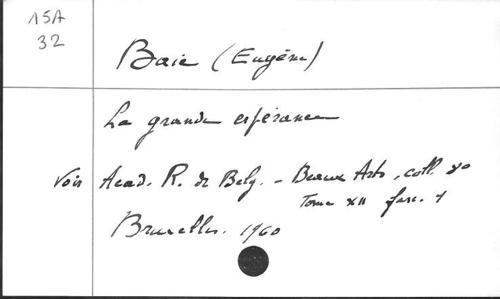 15A
32
Baie (Eugène)
La grande espérance
Voir Acad. R. de Belg. - Beaux Arts, coll. 8º
Tome XII fasc. 1
Bruxelles. 1960